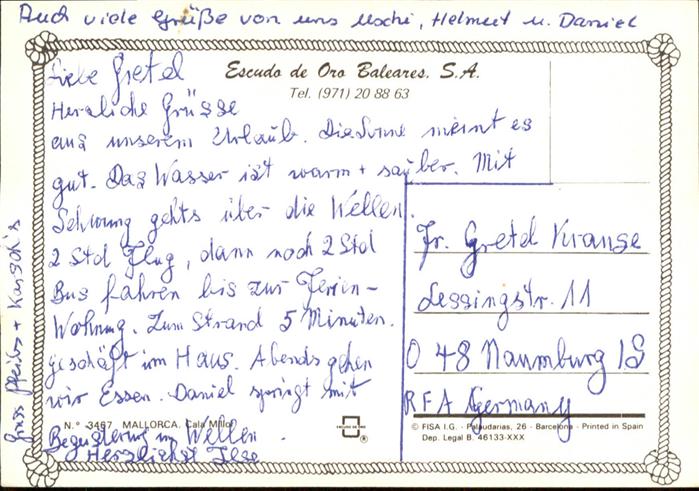 Auch viele Grüße von uns Uschi, Helmut u. Daniel
Liebe Gretel
Escudo de Oro Baleares. S.A.
Tel. (971) 20 88 63
Herzliche Grüsse
aus unserem Urlaub. Die Sonne meint es
gut. Das Wasser ist warm + sauber. Mit
Schwung gehts über die Wellen.
2 Std Flug, dann noch 2 Std
Bus fahren bis zur Ferien-
Wohnung. Zum Strand 5 Minuten.
geschäft im Haus. Abends gehen
wir Essen. Daniel springt mit
Begeisterung in Wellen.
Herzlichst Ilse
Fr. Gretel Krause
Lessingstr. 11
O 48 Naumburg /S
RFA Germany
N.° 3467 MALLORCA. Cala Millor
© FISA I.G. - Palaudarias, 26 - Barcelona - Printed in Spain
Dep. Legal B. 46133-XXX
Gruss +